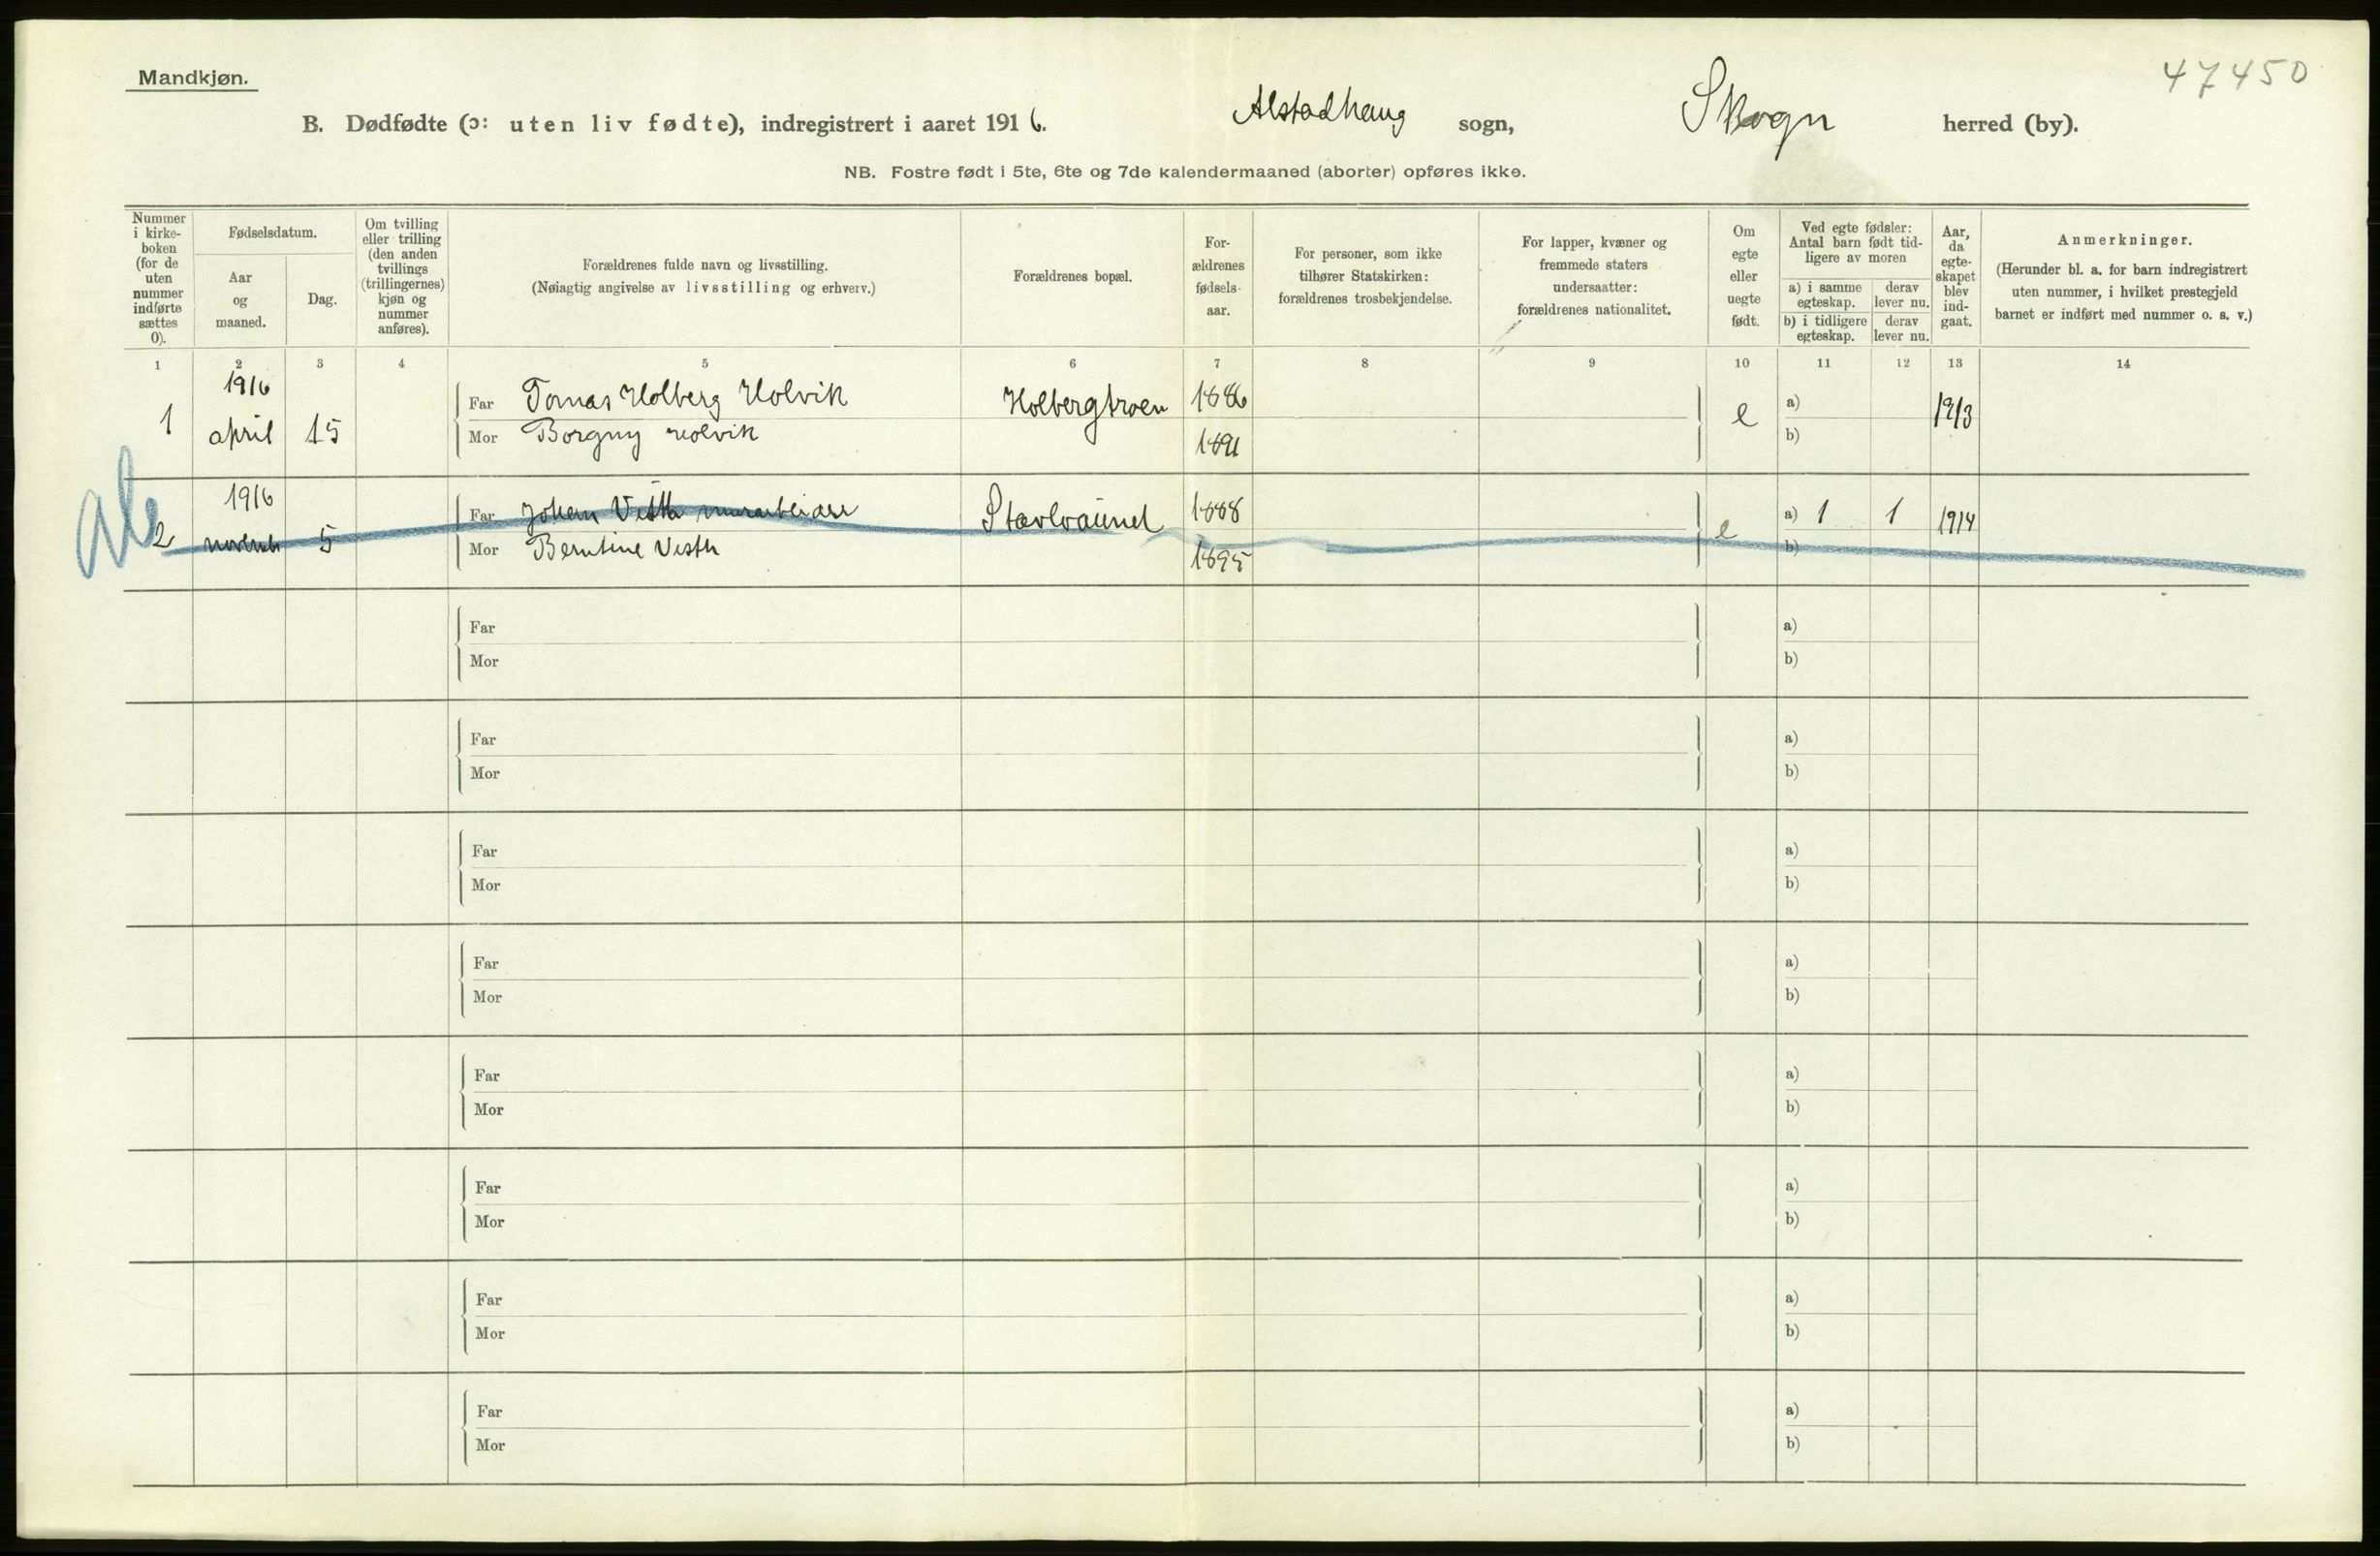 47450
Mandkjøn.
B. Dødfødte (ɔ: uten liv fødte), indregistrert i aaret 1916. Alstadhaug sogn, Skogn herred (by).
NB. Fostre født i 5te, 6te og 7de kalendermaaned (aborter) opføres ikke.
Nummer i kirke-boken (for de uten nummer indførte sættes 0).
Fødselsdatum.
Aar og maaned.
Dag.
Om tvilling eller trilling (den anden tvillings (trillingernes) kjøn og nummer anføres).
Forældrenes fulde navn og livsstilling.
(Nøiagtig angivelse av livsstilling og erhverv.)
Forældrenes bopæl.
For-ældrenes fødsels-aar.
For personer, som ikke tilhører Statskirken: forældrenes trosbekjendelse.
For lapper, kvæner og fremmede staters undersaatter: forældrenes nationalitet.
Om egte eller uegte født.
Ved egte fødsler: Antal barn født tid-ligere av moren
a) i samme egteskap. derav lever nu.
b) i tidligere egteskap. derav lever nu.
Aar, da egte-skapet blev ind-gaat.
Anmerkninger.
(Herunder bl. a. for barn indregistrert uten nummer, i hvilket prestegjeld barnet er indført med nummer o. s. v.)
1 2 3 4 5 6 7 8 9 10 11 12 13 14
1916
1 april 15 Far Tomas Holberg Holvik Holbergtroen 1886 e a) 1913
Mor Borgny Holvik 1891 b)
1916
2 5 Far Johan Vesth murarbeider 1888 e a) 1 1 1914
Mor Berntine Vesth 1895 b)
Far a)
Mor b)
Far a)
Mor b)
Far a)
Mor b)
Far a)
Mor b)
Far a)
Mor b)
Far a)
Mor b)
Far a)
Mor b)
Far a)
Mor b)